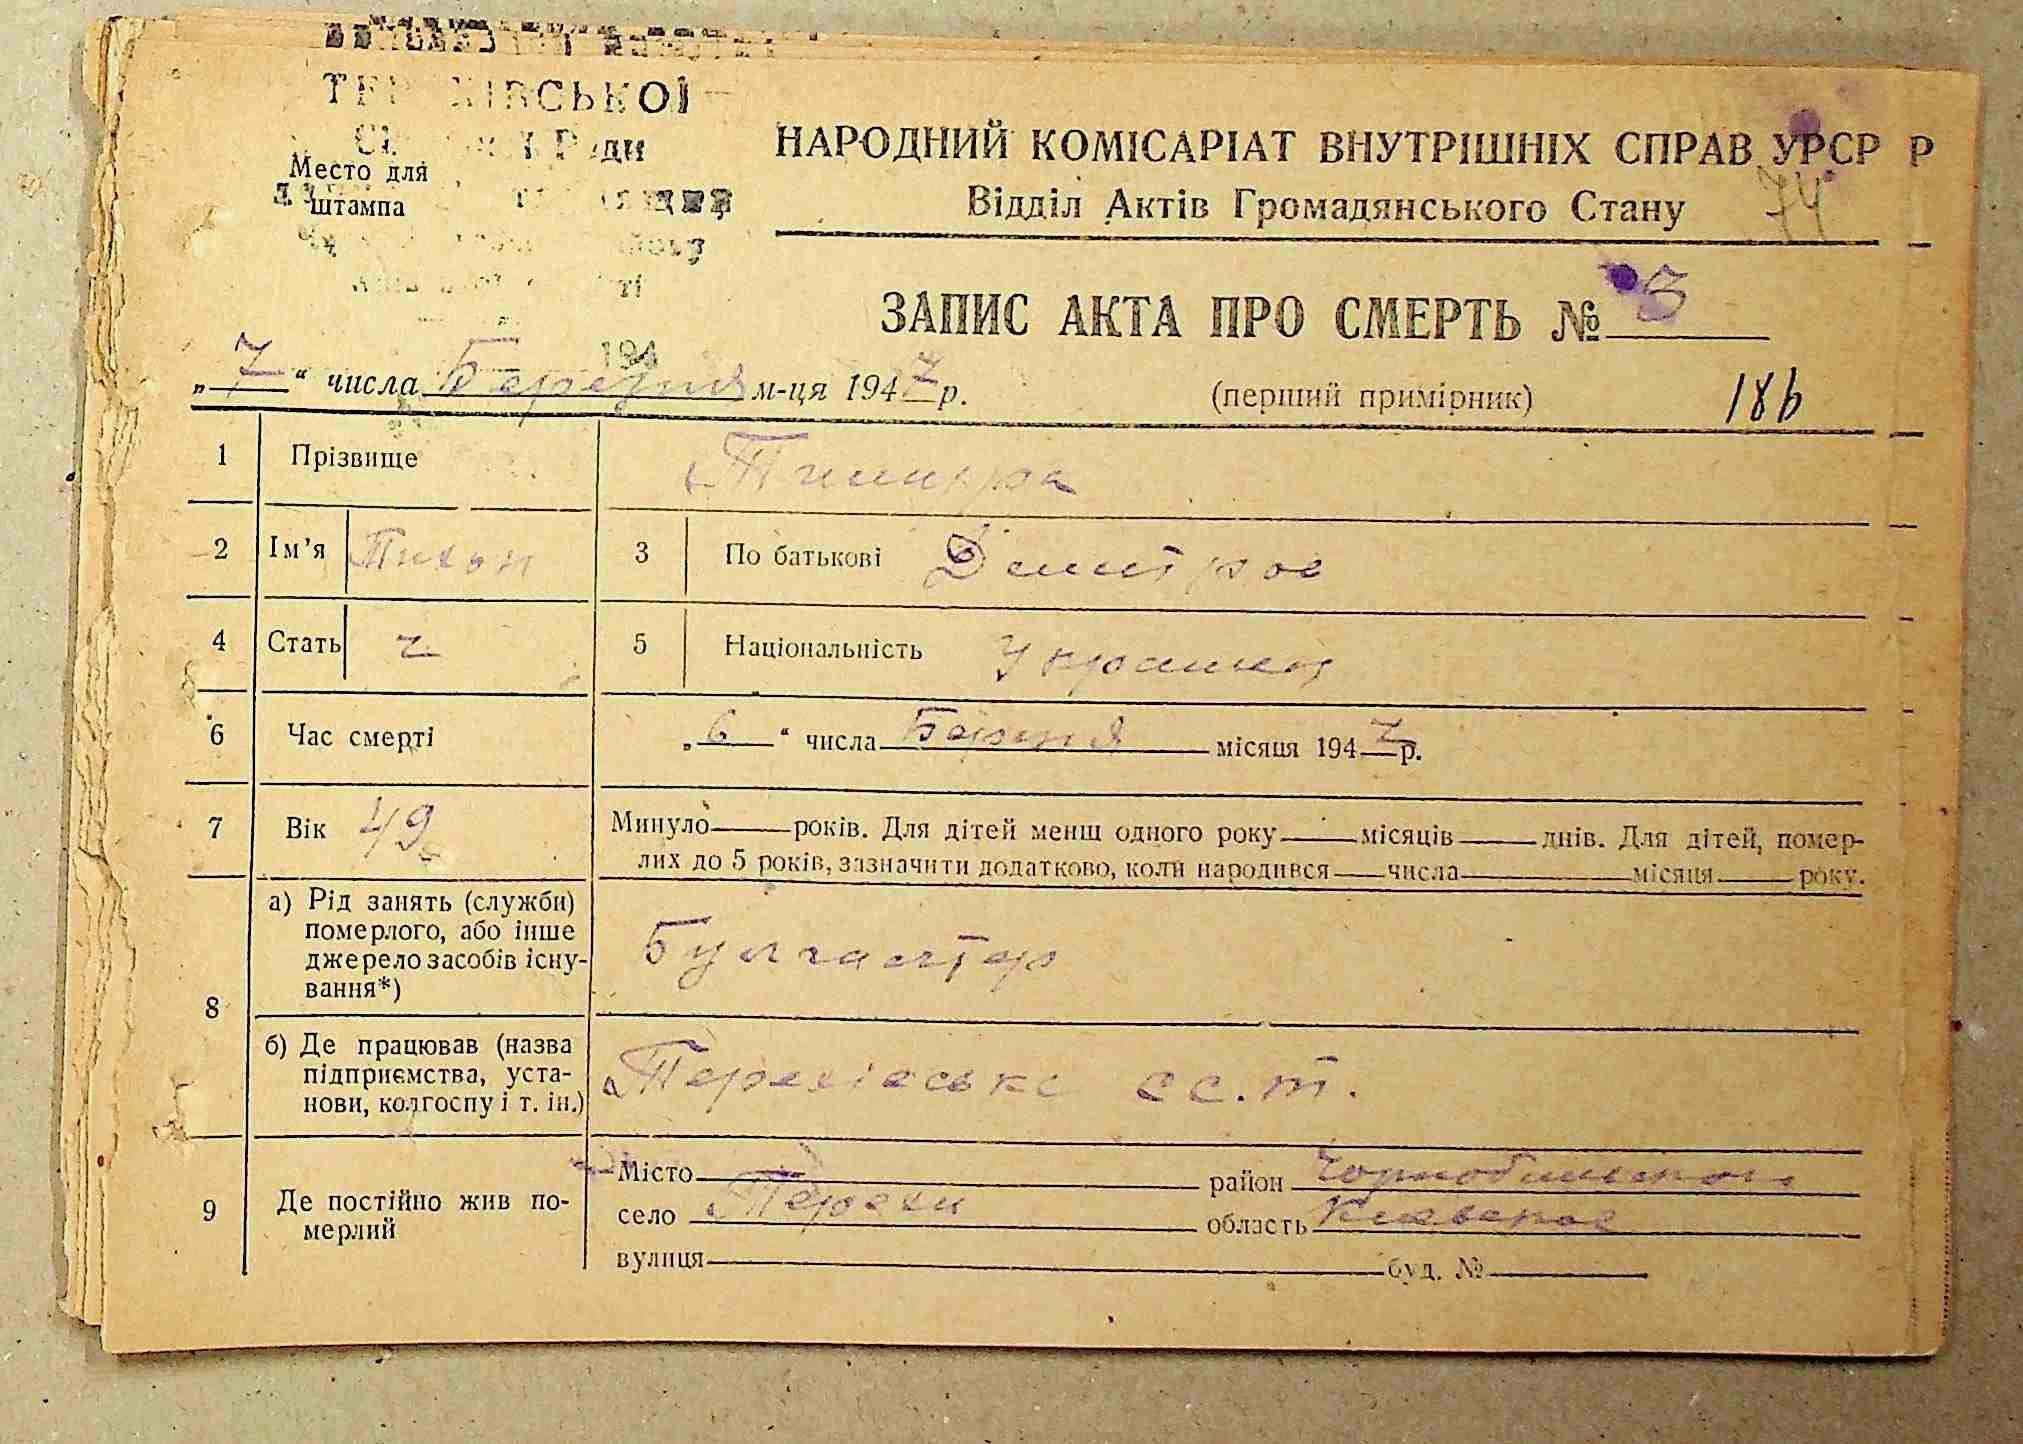 Місто для
штампа
НАРОДНИЙ КОМІСАРІАТ ВНУТРІШНІХ СПРАВ УРСР Р
74
Відділ Актів Громадянського Стану
ЗАПИС АКТА ПРО СМЕРТЬ № 3
194
„7“ числа Березня м-ця 1947 р.
(перший примірник)
186
1 Прізвище
2 Ім’я Тихон 3 По батькові Дмитров
4 Стать ч 5 Національність Українец
6 Час смерті „6“ числа Березня місяця 1947 р.
7 Вік 49 Минуло років. Для дітей менш одного року місяців днів. Для дітей, помер-
лих до 5 років, зазначити додатково, коли народився числа місяця року.
8 а) Рід занять (служби)
померлого, або інше
джерело засобів існу-
вання*)
Булгалтер
б) Де працював (назва
підприємства, уста-
нови, колгоспу і т. ін.)
Терехівське сс.т.
9 Де постійно жив по-
мерлий
Місто район Чорнобильском
село Терехи область Киевской
вулиця буд. №